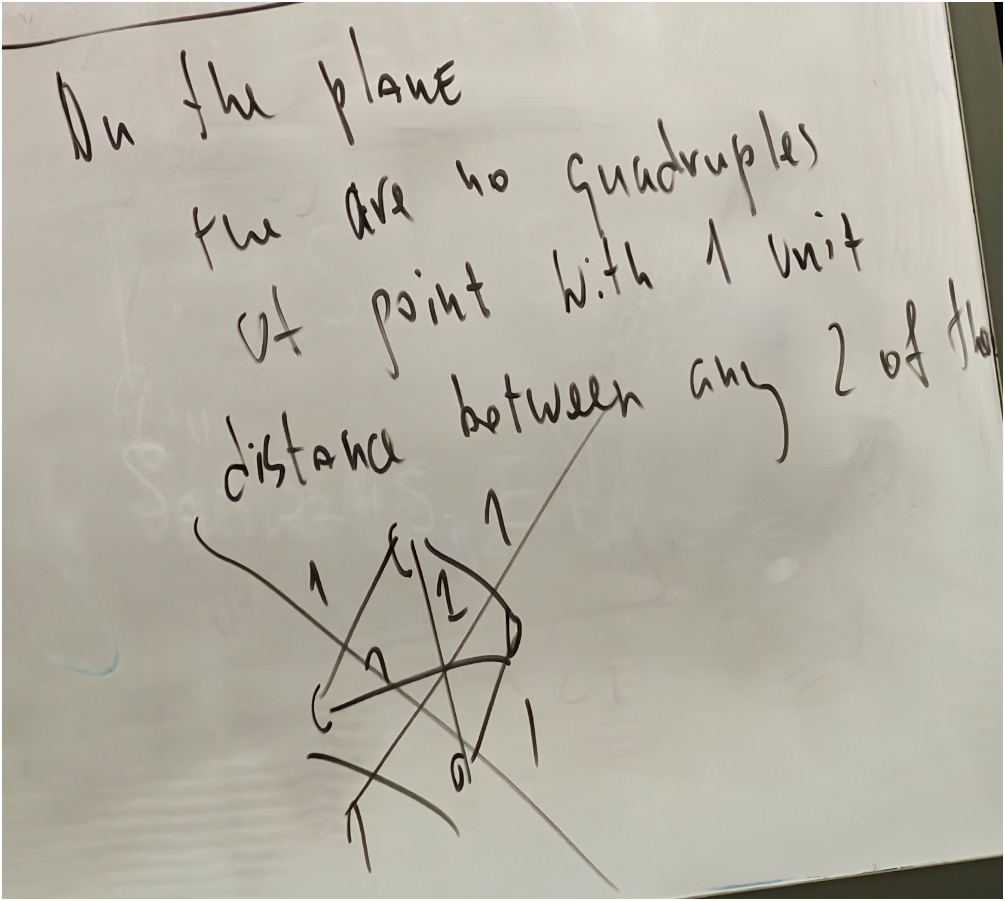 On the plane
the are no quadruples
of point with 1 unit
distance between any 2 of the
1
1
1
1
1
1